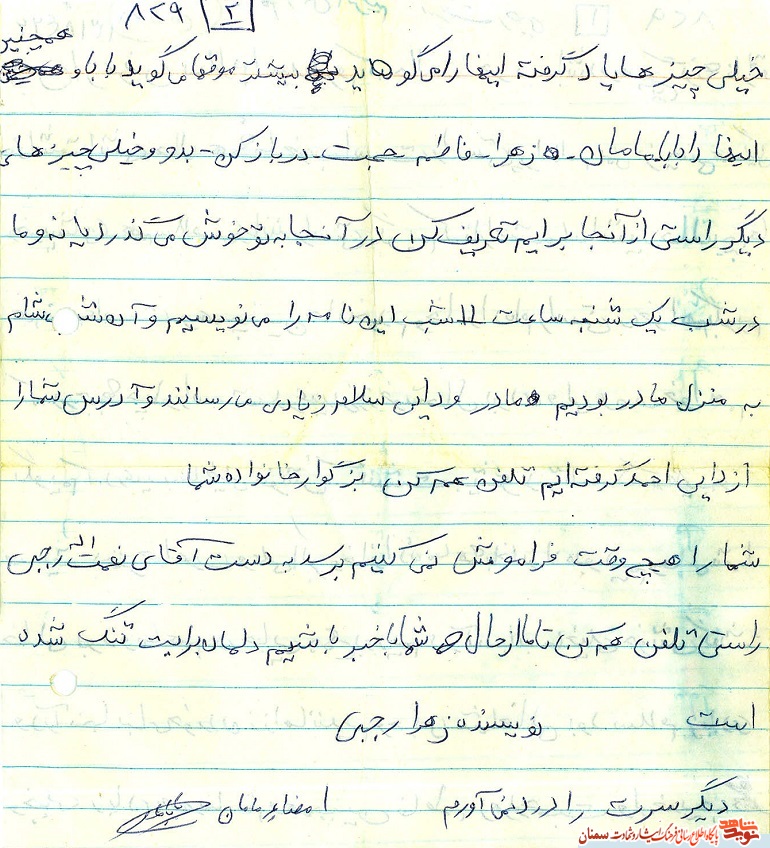 ۸۲۹ ۲
همچنین
خیلی چیزها یاد گرفته اینها را می‌گوید بیشتر موقعا می‌گوید بابا و
اینها را بابا. مامان - زهرا - فاطمه - حجت - در باز کن - بدو و خیلی چیزهای
دیگر راستی از آنجا برایم تعریف کن در آنجا به تو خوش می‌گذرد یا نه و ما
در شب یک شنبه ساعت ۱۱ شب این نامه را می‌نویسیم و شام
به منزل مادر بودیم مادر و دایی سلام زیادی می‌رسانند و آدرس شما را
از دایی احمد گرفته‌ایم تلفن هم کن بزگوار خانواده شما
شما را هیچ وقت فراموش نمی کنیم برسد به دست آقای نعمت اله رجبی
راستی تلفن هم کن تا ما از حال شما با خبر باشیم دلمان برایت تنگ شده
است نویسنده زهرا رجبی
دیگر سرت را درد نمی‌آورم امضاء مامان
نوید شاهد پایگاه اطلاع رسانی فرهنگ ایثار و شهادت سمنان